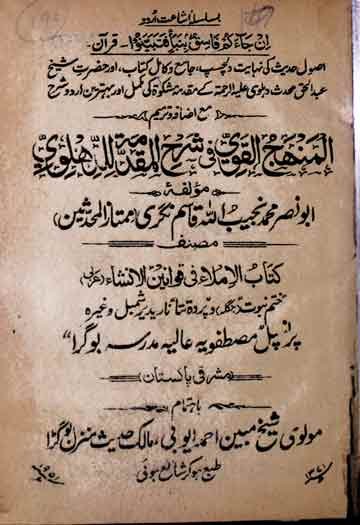 بسلسلۂ اشاعت اُردو
اِن جَآءَ كُم فَاسِقٌ بِنَبَأٍ فَتَبَيَّنُوْا۔ قرآن۔
اصول حدیث کی نہایت دلچسپ، جامع و کامل کتاب، اور حضرت شیخ
عبد الحق محدث دہلوی علیہ الرحمۃ کے مقدمہ مشکوٰۃ کی مکمل اور بہترین اُردو شرح
مع اضافہ و ترمیم
المنهج القوي في شرح المقدمة للدهلوي
مؤلفۂ
ابو نصر محمد نجیب اللہ قاسم نگری (ممتاز المحدثین)
مصنف
کتاب الاملاء فی قوانین الانشاء (عربی)
ختم نبوت (بنگلہ) و پردہ وغیرہ
پرنسپل "مصطفویہ عالیہ مدرسہ بوگرا"
(مشرقی پاکستان)
باہتمام
مولوی شیخ مبین احمد ایوبی، مالک حدیث منزل بوگرا
طبع ہو کر شائع ہوئی